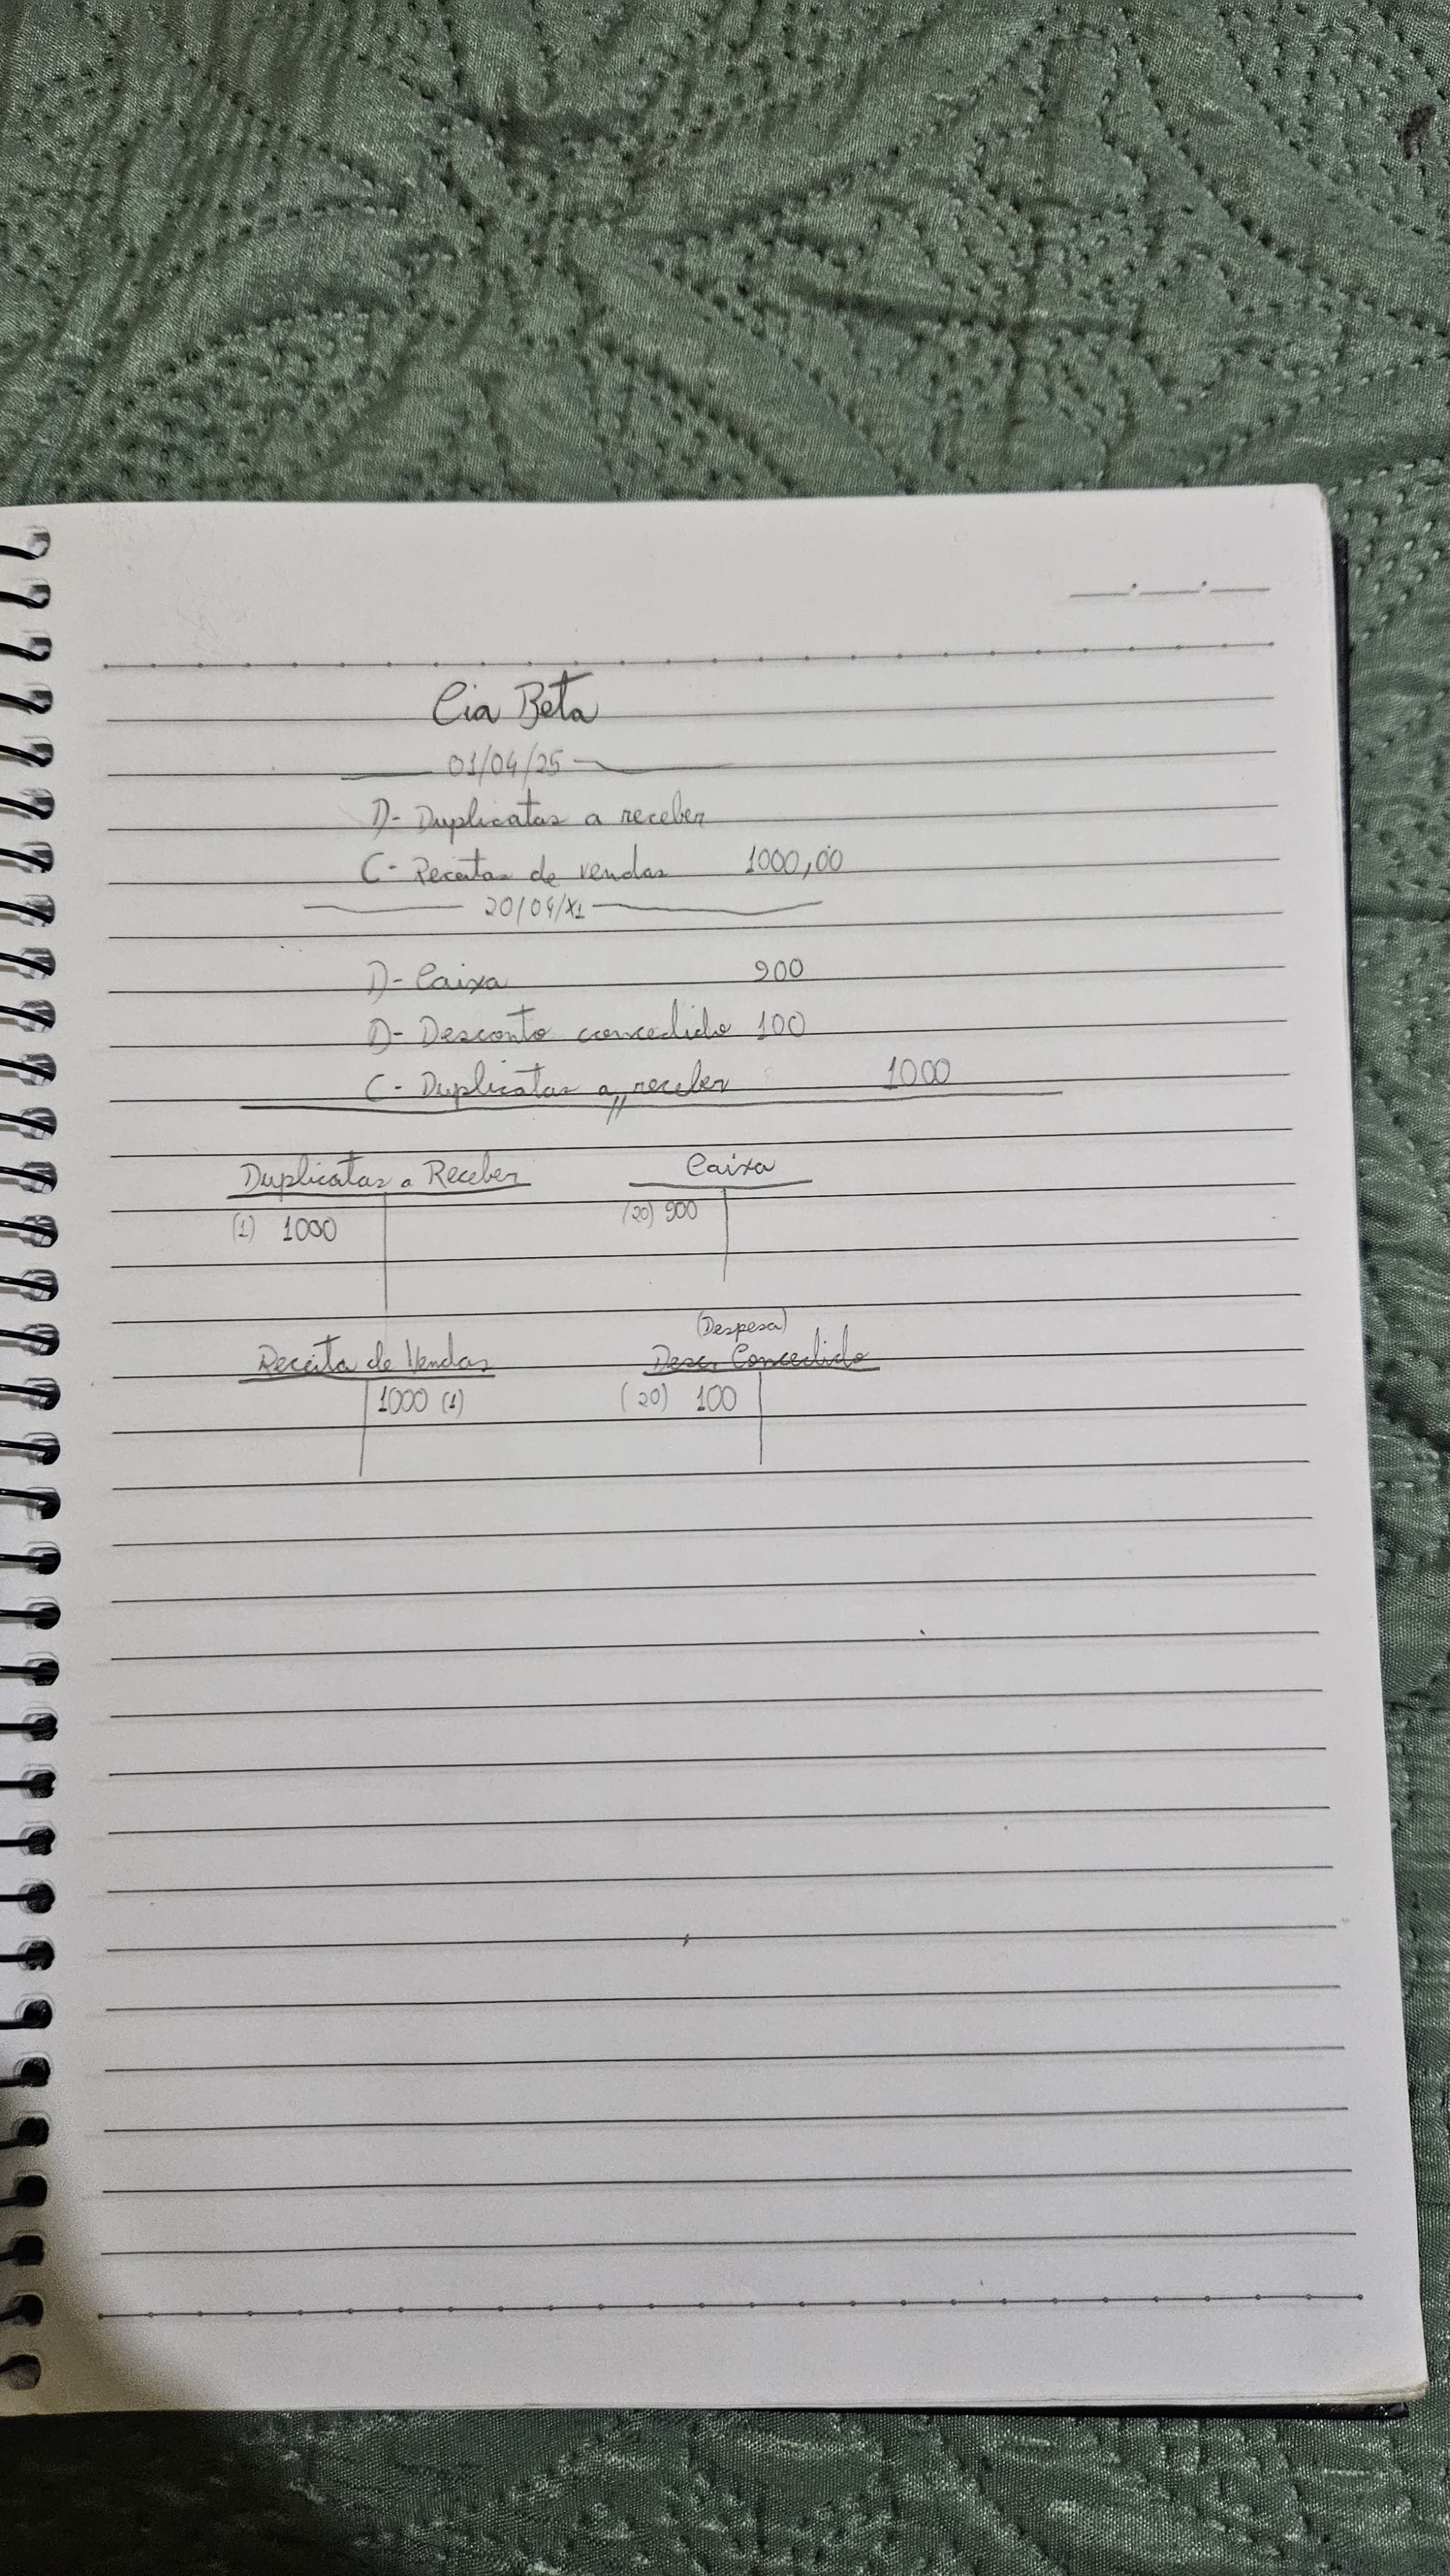 Cia Beta
01/04/25
D- Duplicatas a receber
C- Receitas de vendas 1000,00
20/04/X1
D- Caixa 900
D- Desconto concedido 100
C- Duplicatas a receber 1000
Duplicatas a Receber Caixa
(1) 1000 (20) 900
(Despesa)
Receita de Vendas Desc. Concedido
1000 (1) (20) 100